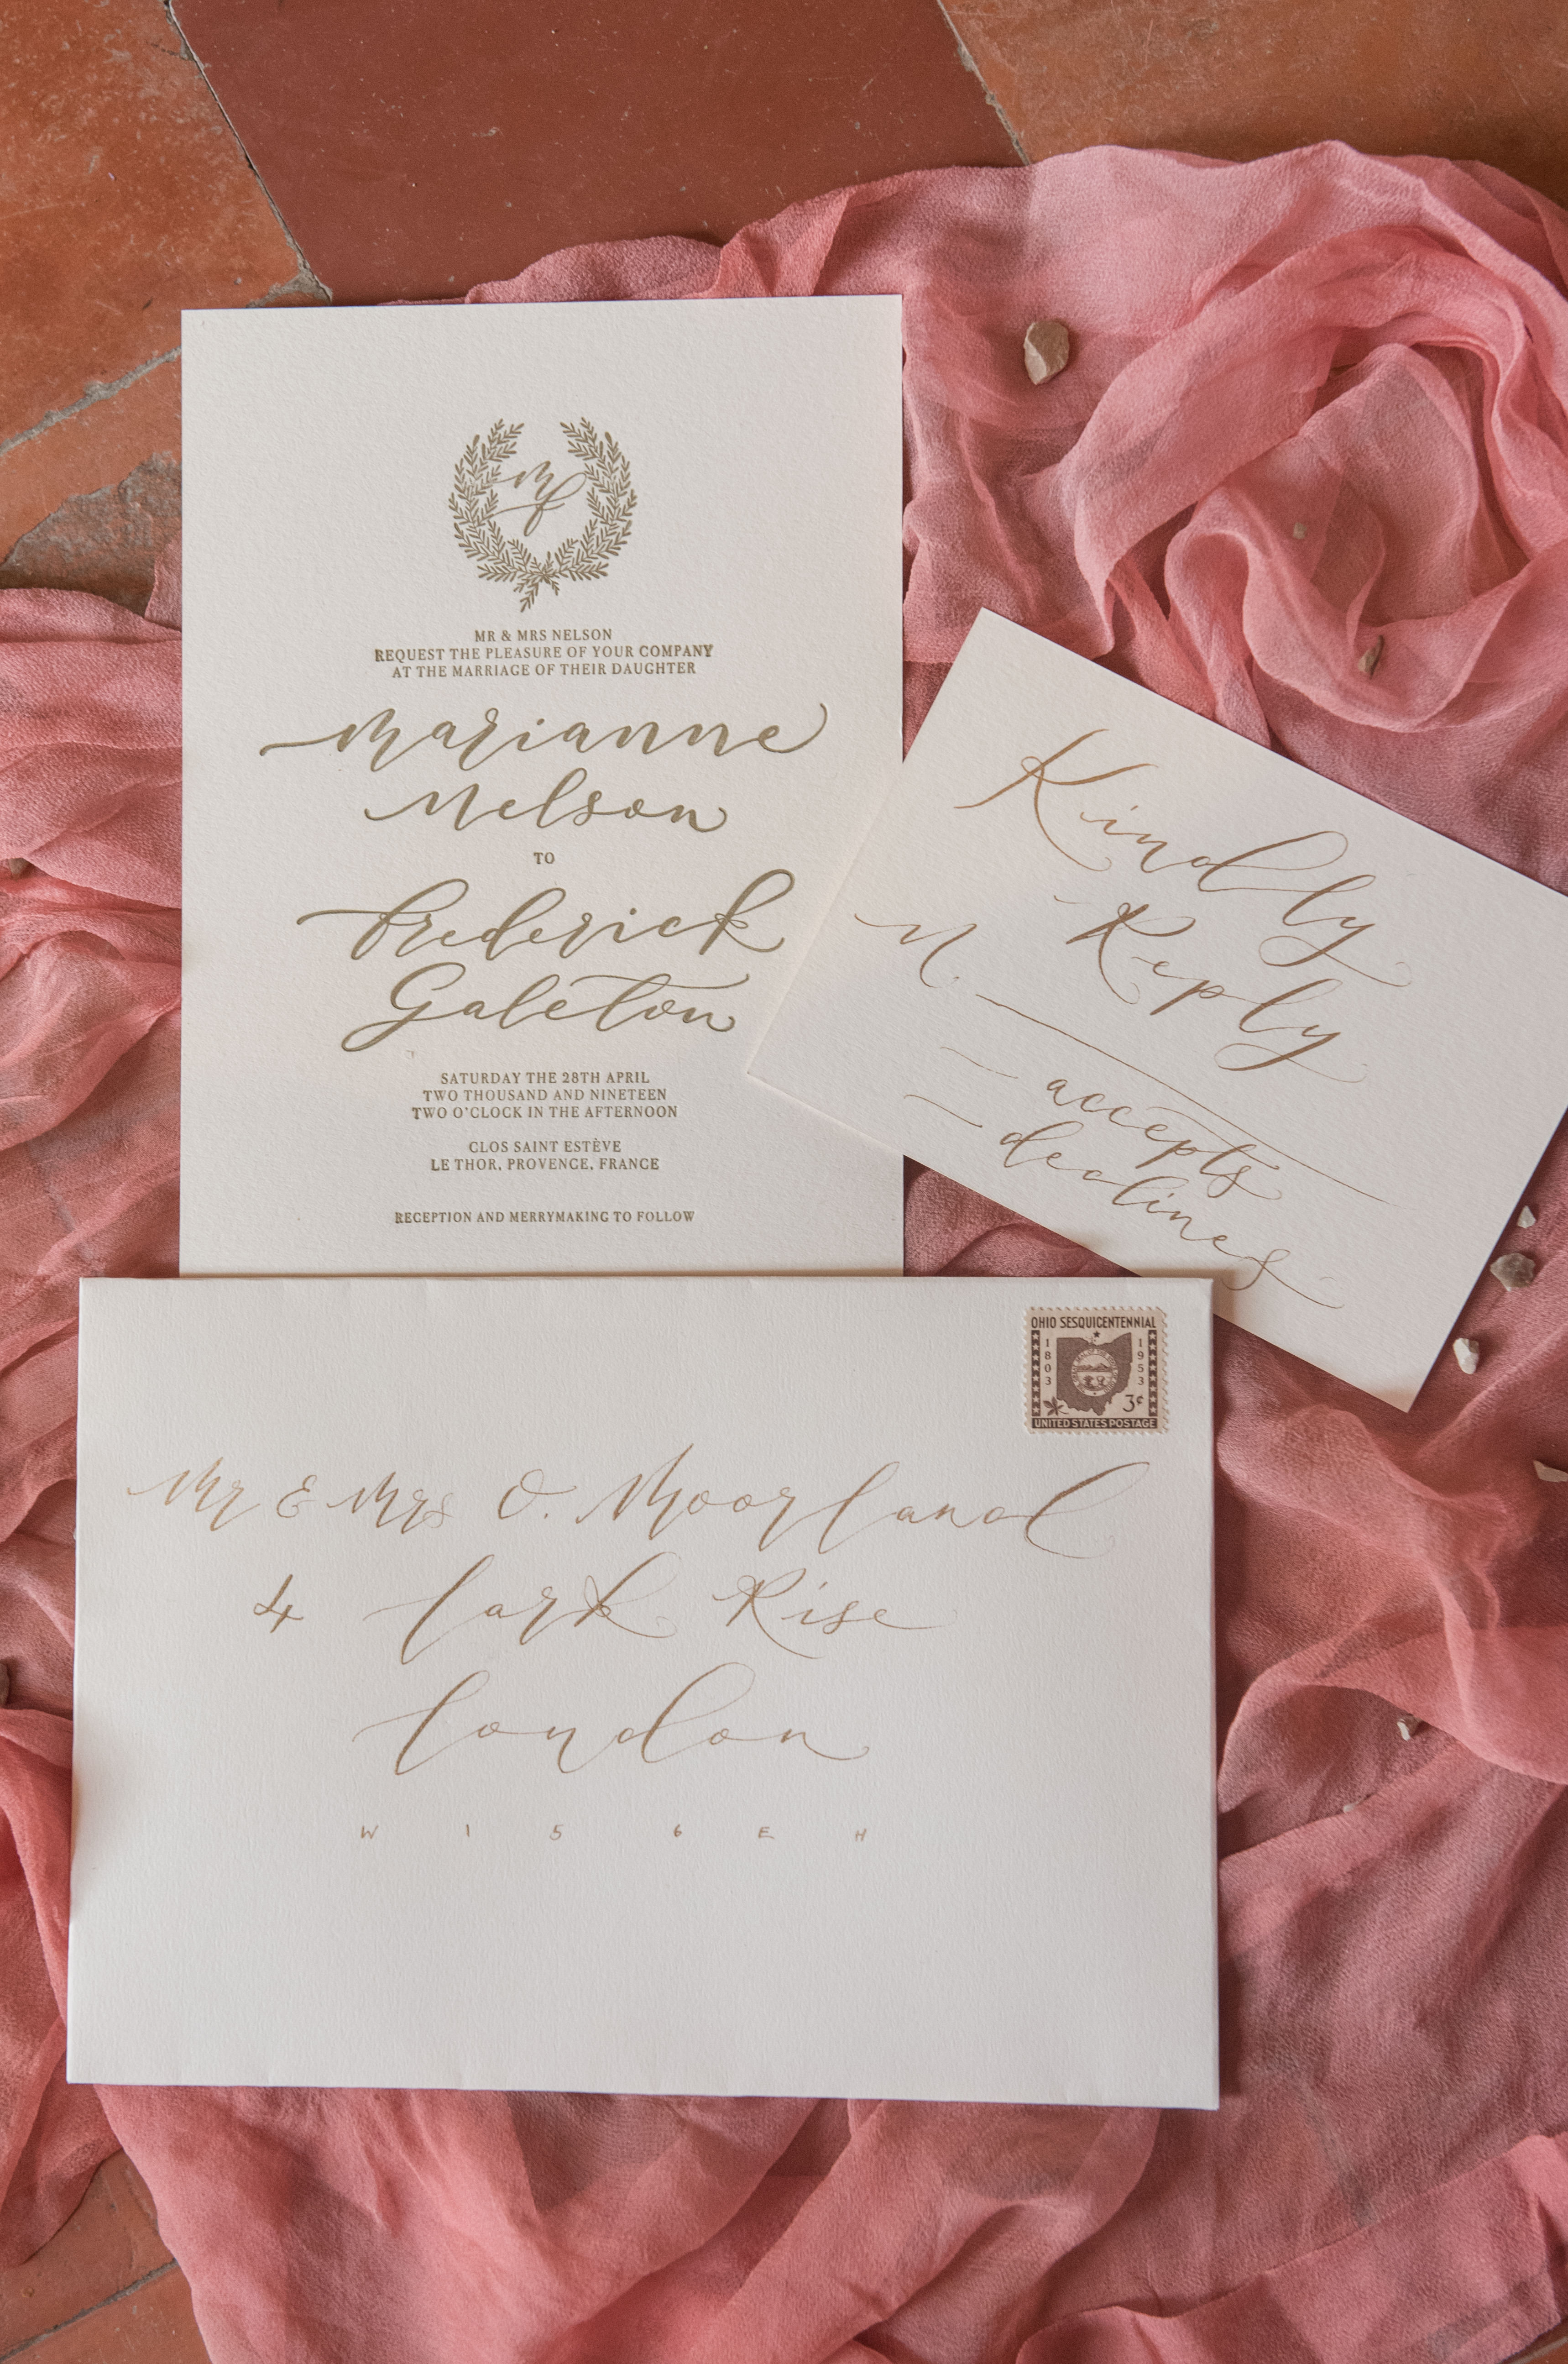 mf
MR & MRS NELSON
REQUEST THE PLEASURE OF YOUR COMPANY
AT THE MARRIAGE OF THEIR DAUGHTER
Marianne
Nelson
TO
Frederick
Galeton
SATURDAY THE 28TH APRIL
TWO THOUSAND AND NINETEEN
TWO O'CLOCK IN THE AFTERNOON
CLOS SAINT ESTÈVE
LE THOR, PROVENCE, FRANCE
RECEPTION AND MERRYMAKING TO FOLLOW
Kindly
Reply
M
accepts
declines
OHIO SESQUICENTENNIAL
1803
1953
3¢
UNITED STATES POSTAGE
Mr & Mrs O. Moorland
4 Lark Rise
London
W 1 5 6 E H